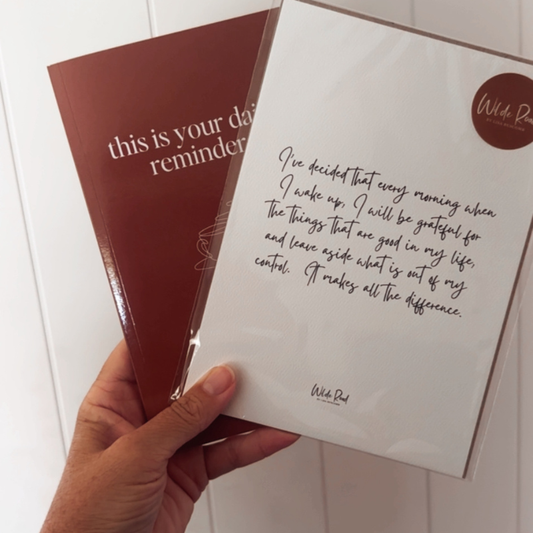 this is your
reminder
Wilde Road
I've decided that every morning when
I wake up, I will be grateful for
the things that are good in my life,
and leave aside what is out of my
control. It makes all the difference.
Wilde Road